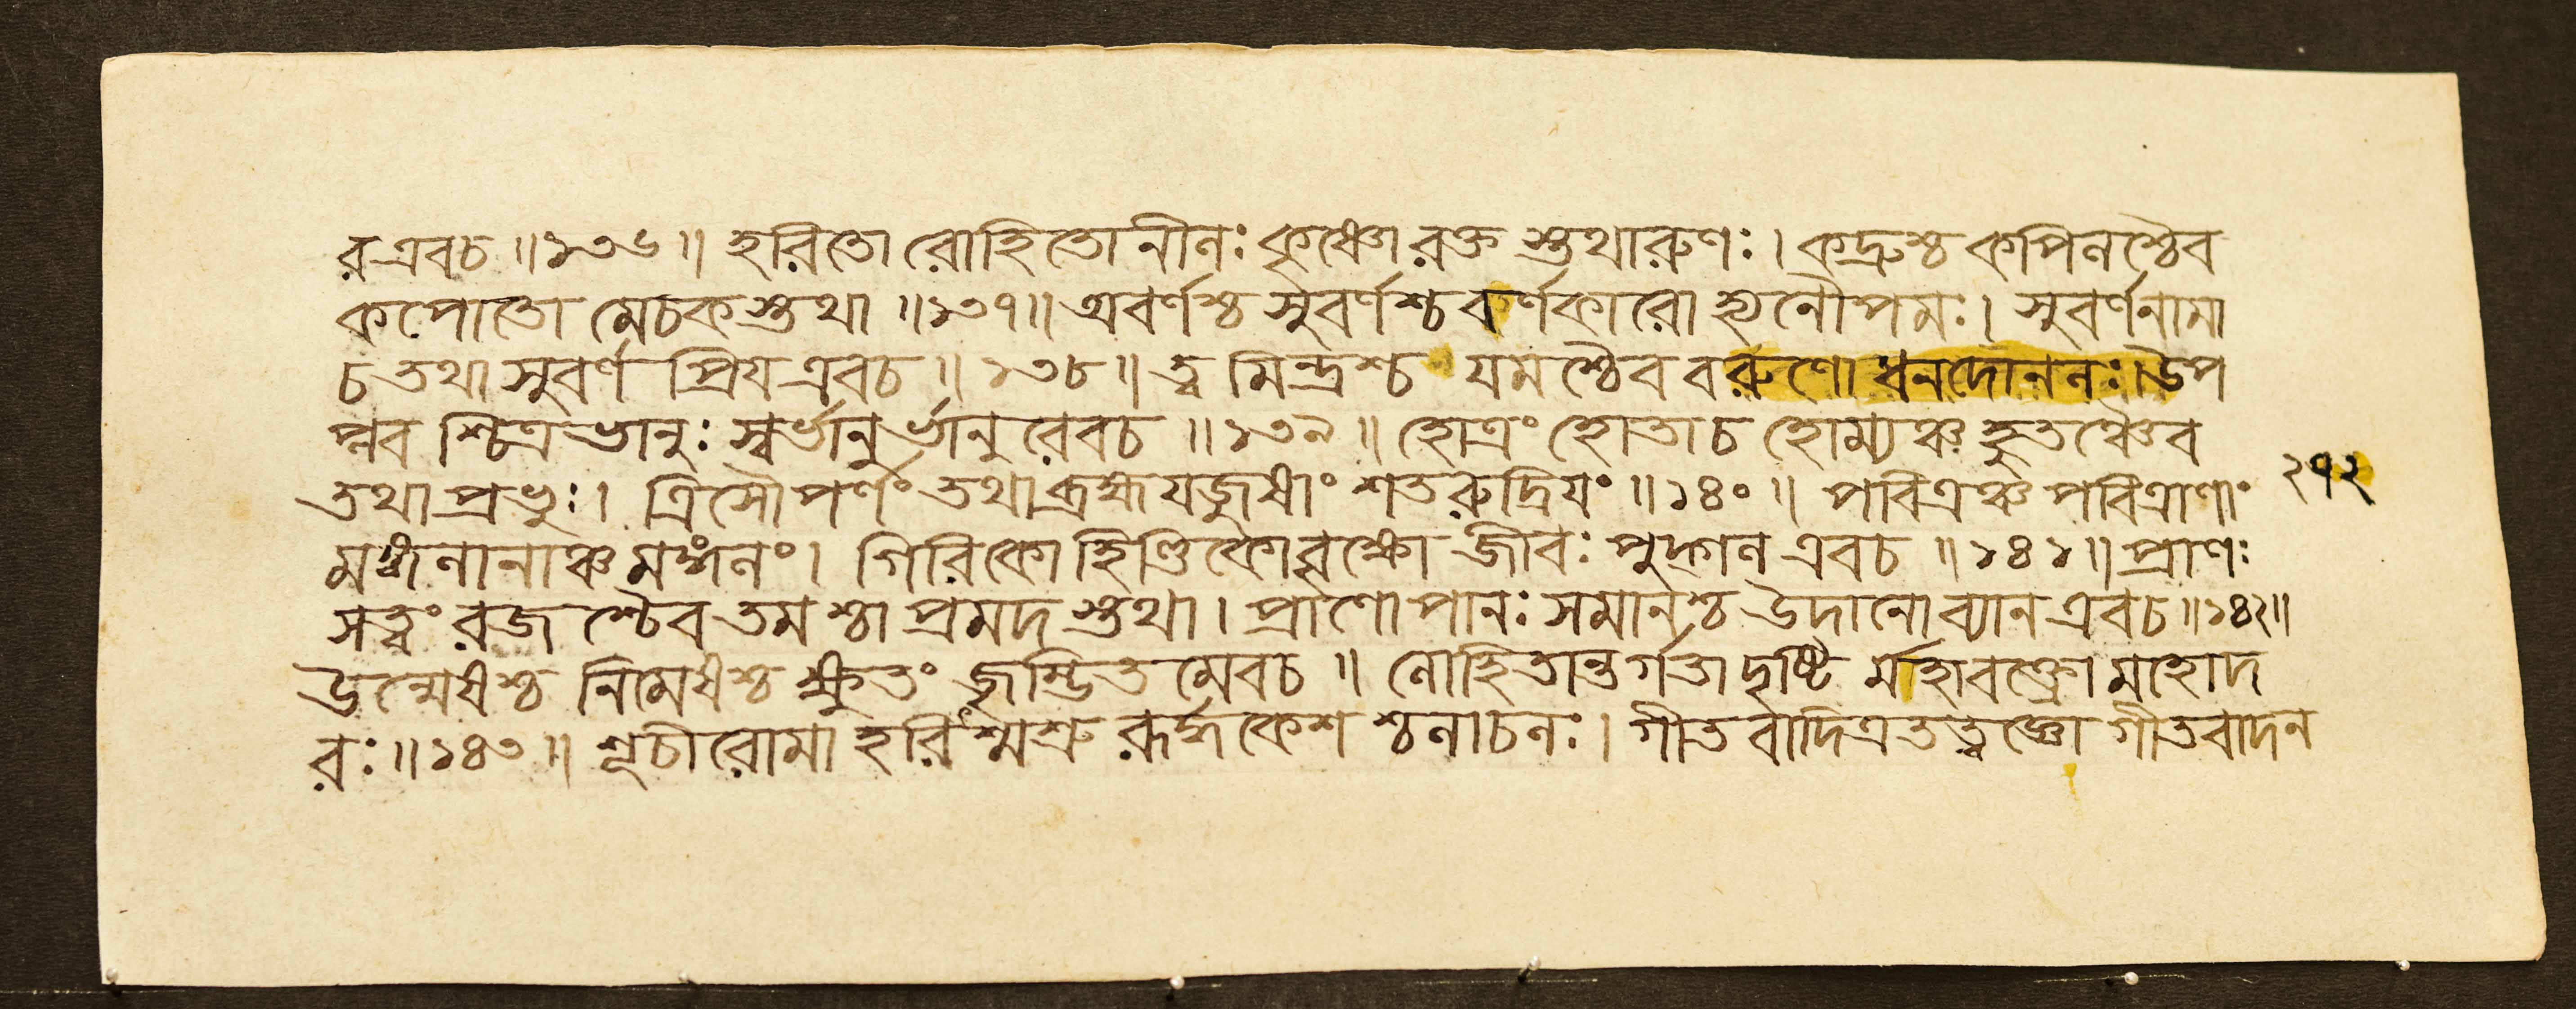 র এবচ ॥ ১৩৬ ॥ হরিতো রোহিতো নীলঃ কৃষ্ণো রক্ত স্তথারুণঃ । কদ্রুশ্চ কপিলশ্চৈব
কপোতো মেচকস্তথা ॥ ১৩৭ ॥ অবর্ণশ্চ সুবর্ণশ্চ বর্ণকারো হ্যনৌপমঃ । সুবর্ণনামা
চ তথা সুবর্ণ প্রিয এবচ ॥ ১৩৮ ॥ ত্ব মিন্দ্রশ্চ যমশ্চৈব বরুণো ধনদোনলঃ । উপ
প্লব শ্চিত্র ভানুঃ স্বর্ভানুর্ভানু রেবচ ॥ ১৩৯ ॥ হোত্রং হোতাচ হোম্যঞ্চ হুতঞ্চৈব
তথা প্রভুঃ । ত্রিসৌপর্ণং তথা ব্রহ্ম যজুষাং শতরুদ্রিযং ॥ ১৪০ ॥ পবিত্রঞ্চ পবিত্রাণাং
মঙ্গলানাঞ্চ মঙ্গলং । গিরিকো হিণ্ডিকো বৃক্ষো জীবঃ পুদ্গল এবচ ॥ ১৪১ ॥ প্রাণঃ
সত্ত্বং রজ শ্চৈব তম শ্চা প্রমদ স্তথা । প্রাণোপানঃ সমানশ্চ উদানো ব্যান এবচ ॥ ১৪২ ॥
উন্মেষশ্চ নিমেষশ্চ ক্ষুতং জৃম্ভিত মেবচ ॥ লোহিতান্তর্গতা দৃষ্টি র্মহাবক্ত্রো মহোদ
রঃ ॥ ১৪৩ ॥ শূচীরোমা হরিশ্মশ্রু রূর্দ্ধকেশ শ্চলাচলঃ । গীত বাদিত্র তত্ত্বজ্ঞো গীতবাদন
২৭২